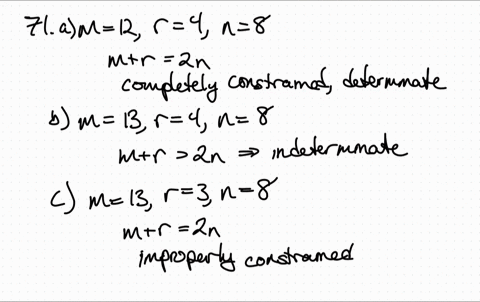 71. a) m=12, r=4, n=8
m+r=2n
completely constrained, determinate
b) m=13, r=4, n=8
m+r>2n ⇒ indeterminate
c) m=13, r=3, n=8
m+r=2n
improperly constrained